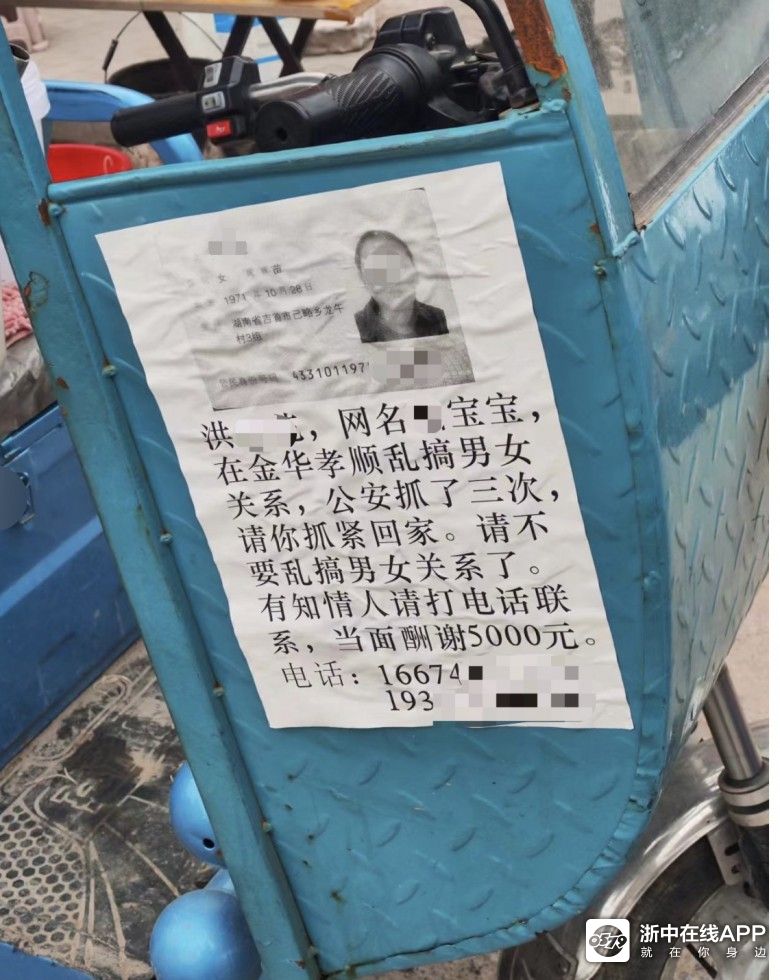 女 民族 苗
1971 年 10 月 28 日
湖南省吉首市己略乡龙牛
村3组
公民身份号码 4331011971
洪 ，网名 宝宝，
在金华孝顺乱搞男女
关系，公安抓了三次，
请你抓紧回家。请不
要乱搞男女关系了。
有知情人请打电话联
系，当面酬谢5000元。
电话：16674
193
浙中在线APP
就在你身边